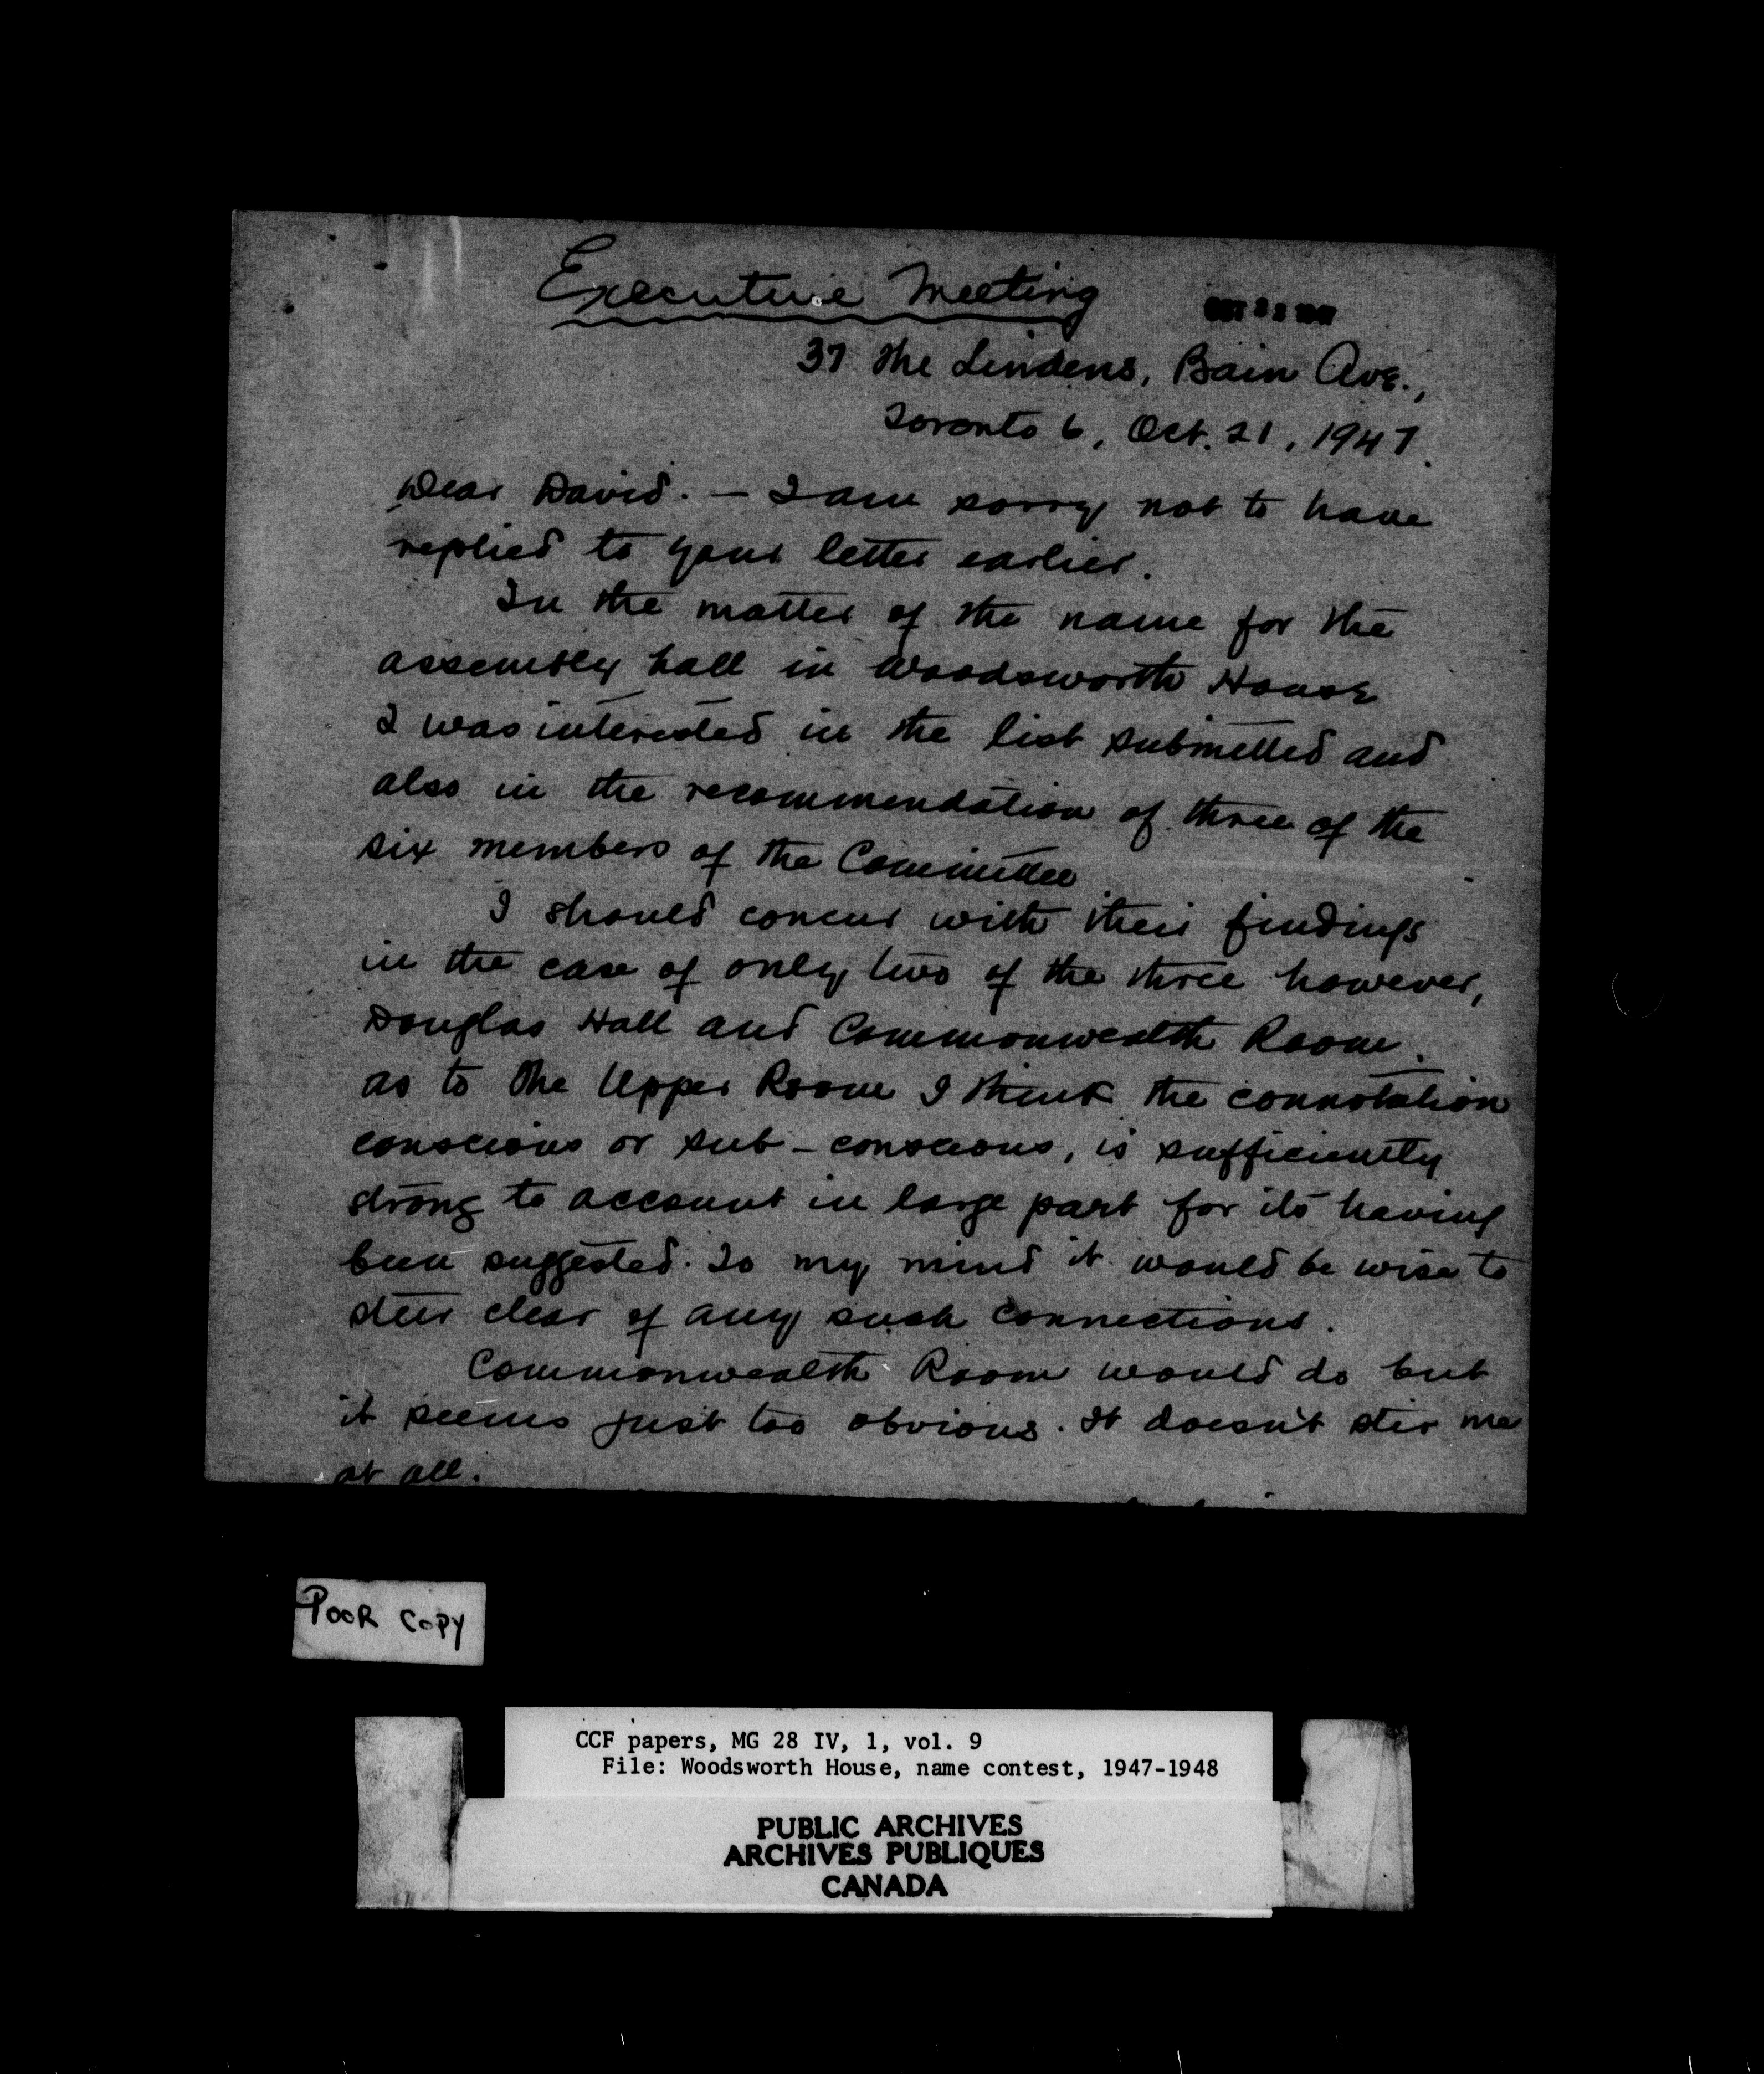 Executive Meeting
OCT 22 1947
37 The Lindens, Bain Ave.,
Toronto 6, Oct. 21, 1947.
Dear David. — I am sorry not to have
replied to your letter earlier.
In the matter of the name for the
assembly hall in Woodsworth House
I was interested in the list submitted and
also in the recommendation of three of the
six members of the Committee
I should concur with their findings
in the case of only two of the three however,
Douglas Hall and Commonwealth Room.
As to The Upper Room I think the connotation
conscious or sub-conscious, is sufficiently
strong to account in large part for its having
been suggested. To my mind it would be wise to
steer clear of any such connections.
Commonwealth Room would do but
it seems just too obvious. It doesn't stir me
at all.
POOR COPY
CCF papers, MG 28 IV, 1, vol. 9
File: Woodsworth House, name contest, 1947-1948
PUBLIC ARCHIVES
ARCHIVES PUBLIQUES
CANADA